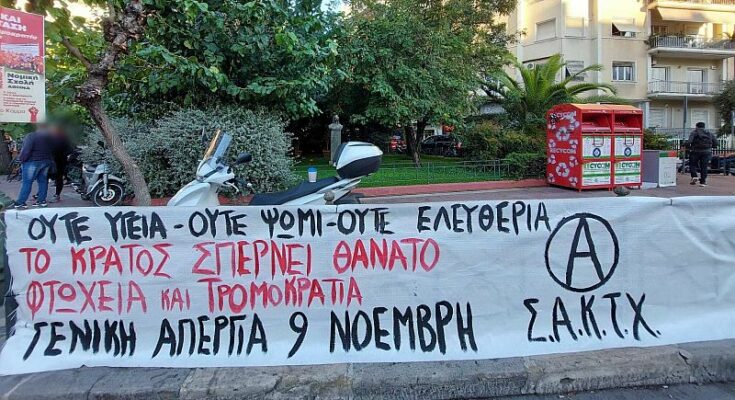 ΚΑΙ
ΣΤΑΣΗ
Νομική
Σχολή
ΑΘΗΝΑ
RECYCOM
RECYCOM
ΟΥΤΕ ΥΓΕΙΑ - ΟΥΤΕ ΨΩΜΙ - ΟΥΤΕ ΕΛΕΥΘΕΡΙΑ
ΤΟ ΚΡΑΤΟΣ ΣΠΕΡΝΕΙ ΘΑΝΑΤΟ
ΦΤΩΧΕΙΑ ΚΑΙ ΤΡΟΜΟΚΡΑΤΙΑ
ΓΕΝΙΚΗ ΑΠΕΡΓΙΑ 9 ΝΟΕΜΒΡΗ
Α
Σ.Α.Κ.Τ.Χ.